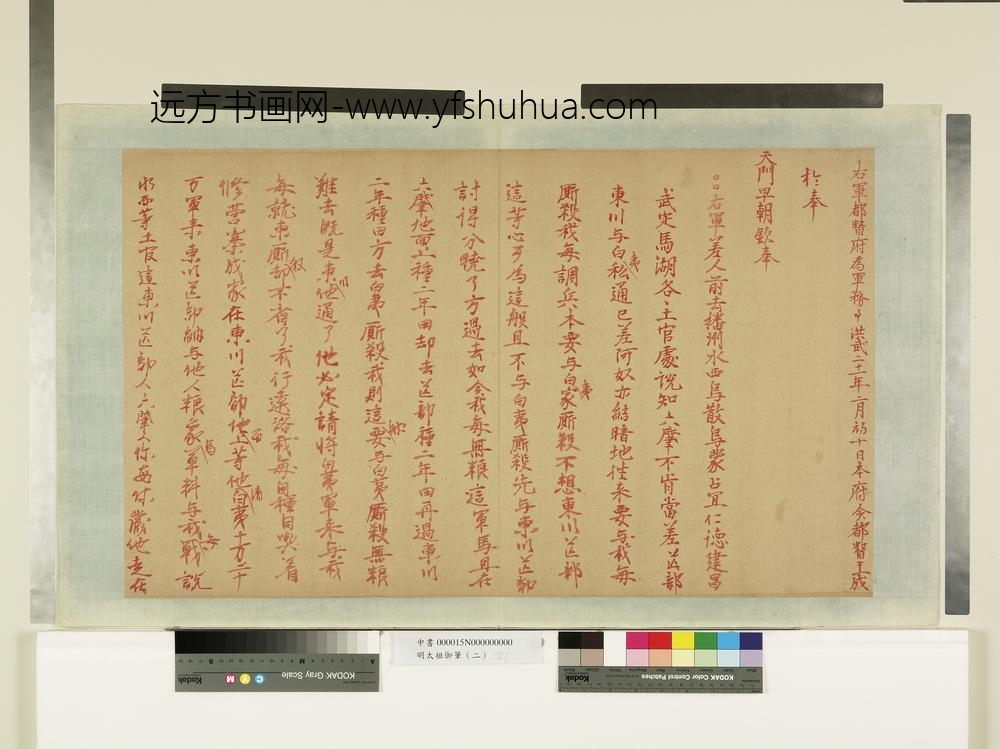 远方书画网-www.yfshuhua.com
右軍都督府為軍務事洪武二十一年二月初十日本府僉都督王成
於奉
天門早朝欽奉
右軍差人前去播州水西烏散烏蒙占宜仁德建昌
武定馬湖各土官處說知六肇不肯當差芒部
東川与白夷私通已差阿奴亦結暗地往来要与我每
厮殺我每調兵本要与白夷家厮殺不想東川芒部
這等心歹為這般且不与白夷厮殺先与東川芒部
討得分曉了方過去如今我每無粮這軍馬且在
六肇地面上種二年田却去芒部種二年田再過東川
二年種田方去白夷厮殺我則這要与白夷厮殺無粮
難去既是東川他通了他必定請將白夷軍来与我
每就東厮殺却不省了我行遠路我每自種自喫着
修营寨成家在東川芒部地面上等他請白夷十万二十
万軍来東川芒部納与他人粮馬草料与我每戰說
水西等土官這東川芒部人六肇人你每休藏他走在
中書 000015N000000000
明太祖御筆（二）
KODAK Gray Scale
Kodak
C Y M
KODAK Color Control Patches
Kodak